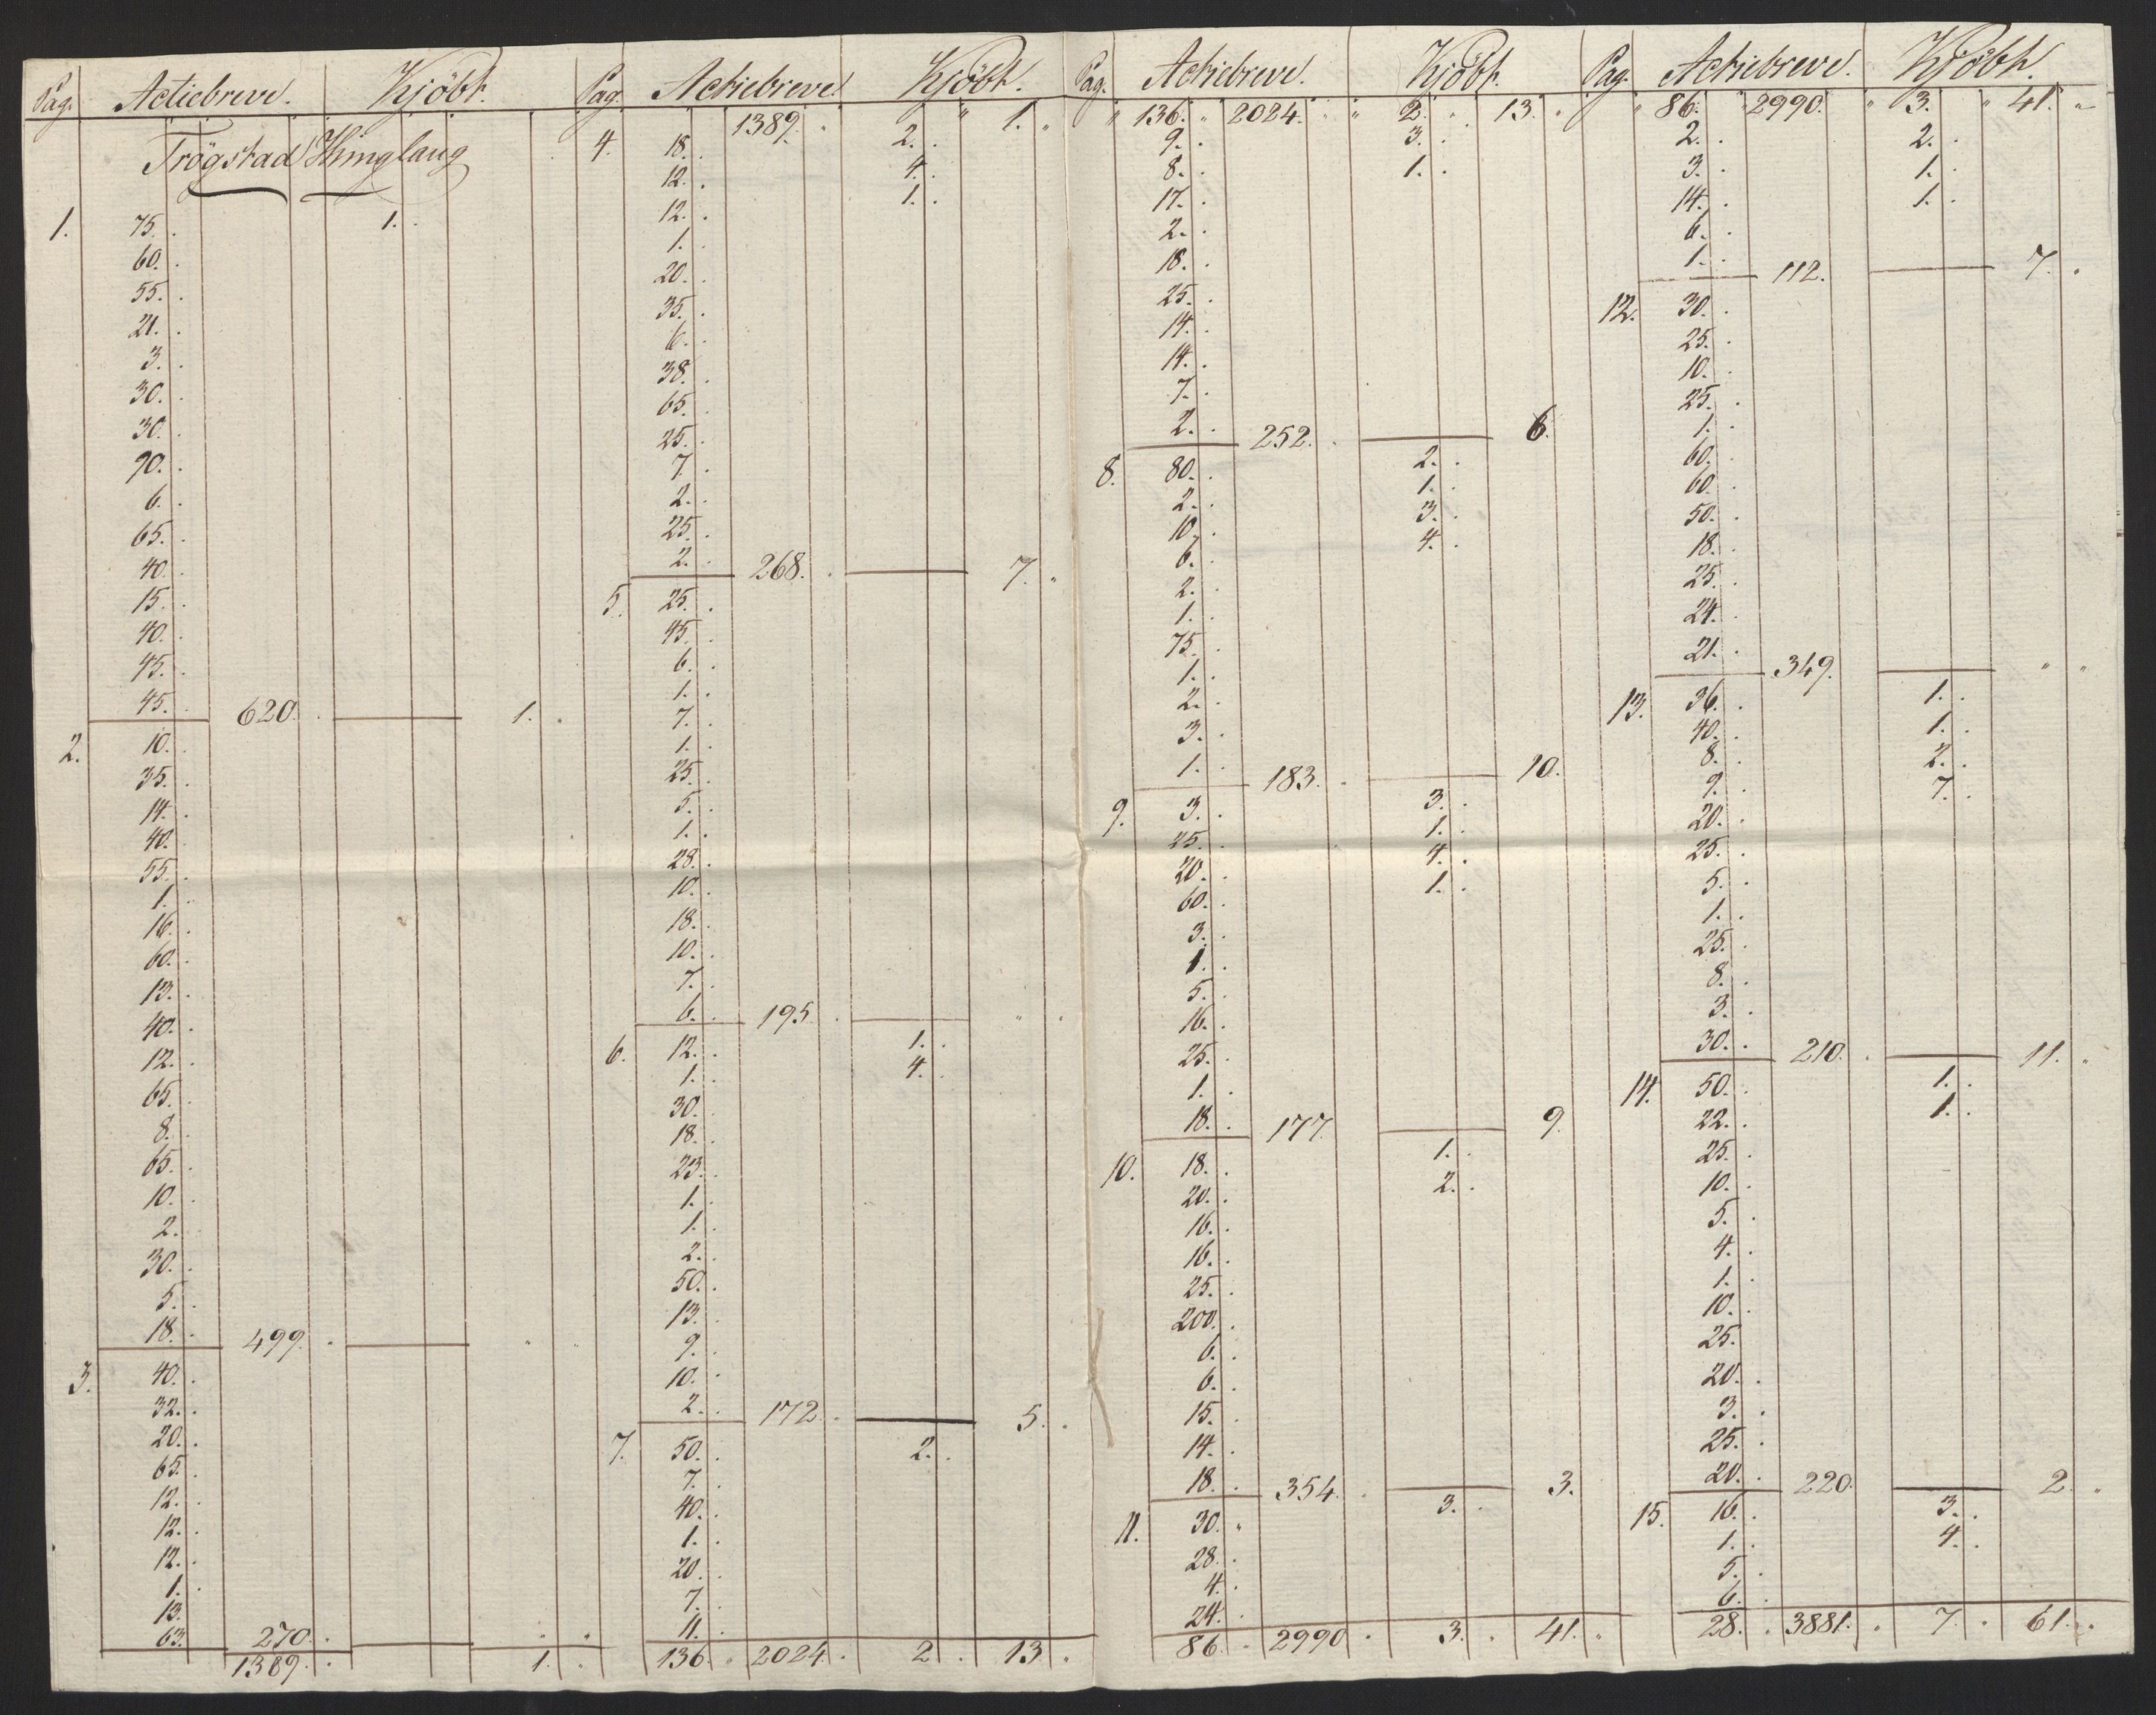 Pag. Actiebreve. Kjöbt.
Trögstad Thinglaug
1. 75. 1.
60.
55.
21.
3.
30.
30.
90.
6.
65.
40.
15.
40.
45.
45. 620. 1.
2. 10.
35.
14.
40.
55.
1.
16.
60.
13.
40.
12.
65.
8.
65.
10.
2.
30.
5.
18. 499. " "
3. 40.
32.
20.
65.
12.
12.
12.
1.
13.
63. 270. " "
1389. 1.
Pag. Actiebreve. Kjöbt.
1389. " 1. "
4. 18. 2.
12. 4.
12. 1.
1.
20.
35.
6.
38.
65.
25.
7.
2.
25.
2. 268. 7. "
5. 25.
45.
6.
1.
7.
1.
25.
5.
1.
28.
10.
18.
10.
7.
6. 195. " "
6. 12. 1.
1. 4.
30.
18.
23.
1.
1.
2.
50.
13.
9.
10.
2. 172. 5.
7. 50. 2.
7.
40.
1.
20.
7.
11.
136. " 2024. 2. 13.
Pag. Actiebreve. Kjöbt.
" 136. " 2024. " " 2. " 13. "
9. 3.
8. 1.
17.
2.
18.
25.
14.
14.
7.
2. 252. 6.
8. 80. 2.
2. 1.
10. 3.
6. 4.
2.
1.
75.
1.
2.
3.
1. 183. 10.
9. 3. 3.
25. 1.
20. 4.
60. 1.
3.
1.
5.
16.
25.
1.
18. 177. 9.
10. 18. 1.
20. 2.
16.
16.
25.
200.
6.
6.
15.
14.
18. 354. 3.
11. 30. 3.
28.
4.
24.
86. 2990. 3. 41. "
Pag. Actiebreve. Kjöbt.
" 86. " 2990. " 3. " 41. "
2. 2.
3. 1.
14. 1.
6.
1. 112. 7. "
12. 30.
25.
10.
25.
1.
60.
60.
50.
18.
25.
24.
21. 349. " "
13. 36. 1.
40. 1.
8. 2.
9. 7.
20.
25.
5.
1.
25.
8.
3.
30. 210. 11. "
14. 50. 1.
22. 1.
25.
10.
5.
4.
1.
10.
25.
20.
3.
25.
20. 220. 2. "
15. 16. 3.
1. 4.
5.
6.
28. 3881. " 7. " 61. "